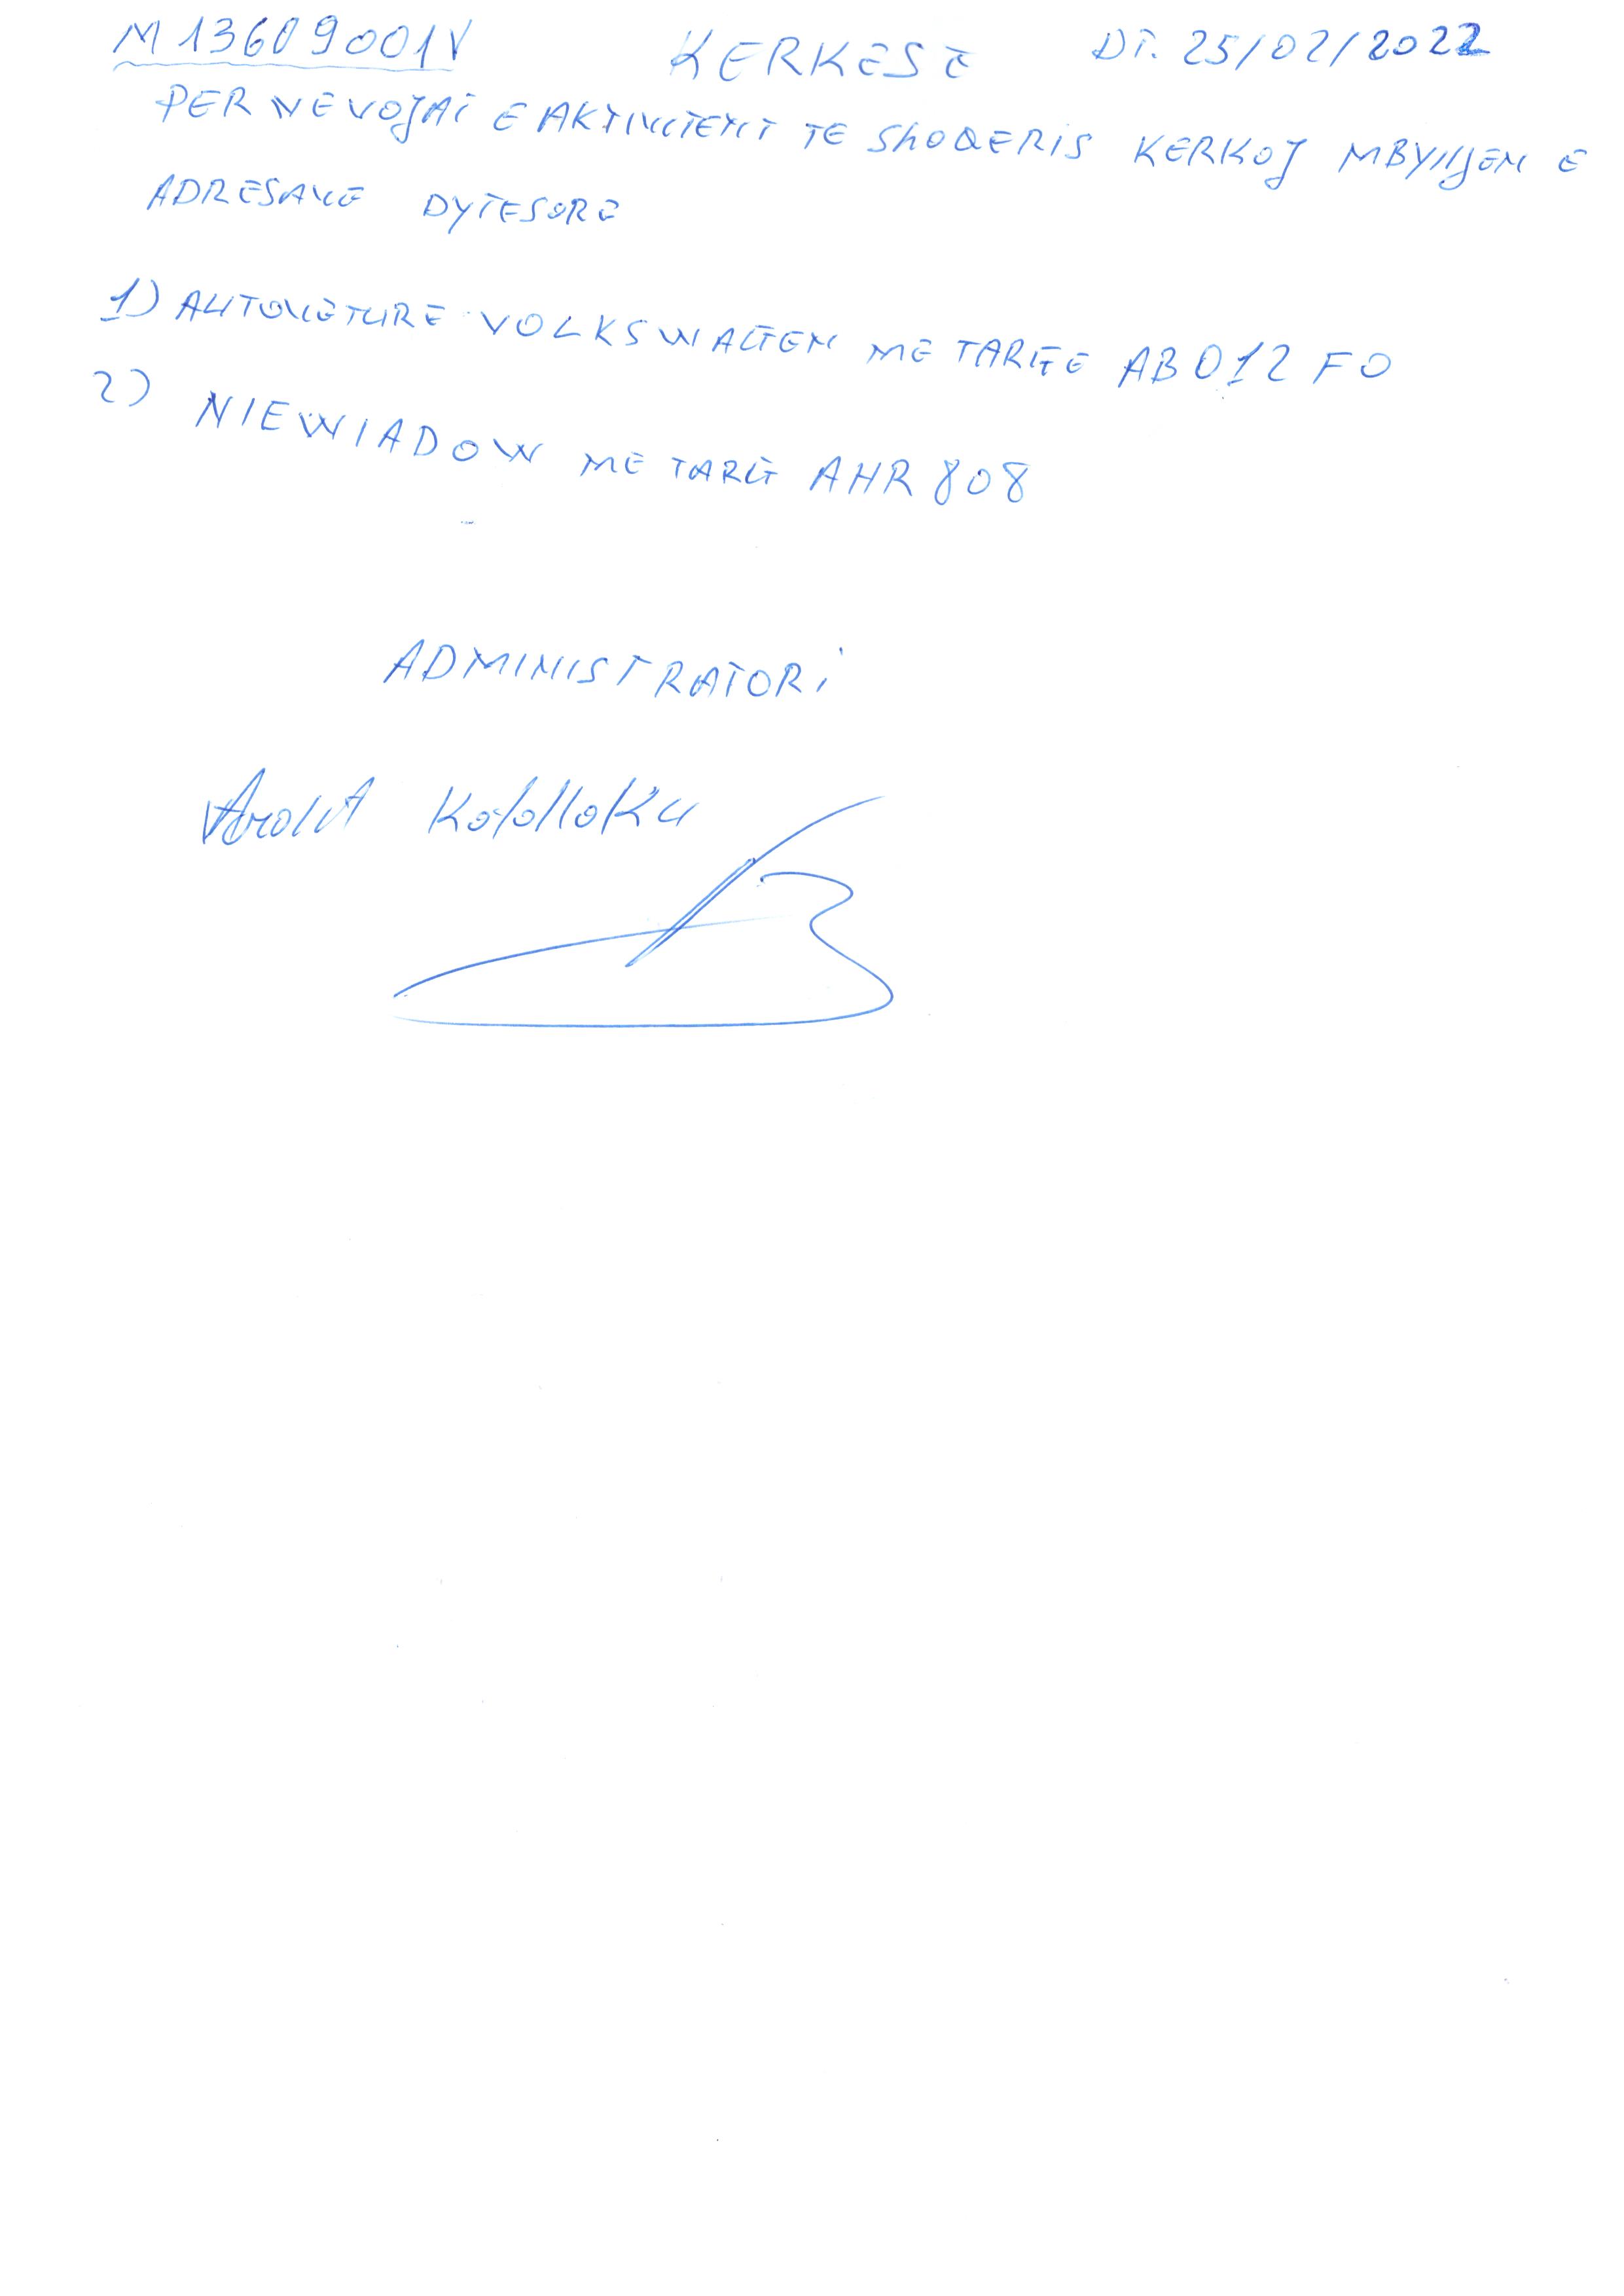 M13609001V KERKESE DT. 25/02/2022
PER NEVOJAT E AKTIVITETIT TE ShOQERIS KERKOJ MBYlljEN E
ADRESAVE DYTESORE
1) AUTOVETURE VOLKSWAGEN ME TARGE AB012FO
2) NIEWIADOW ME TARG AHR 808
ADMINISTRATORI